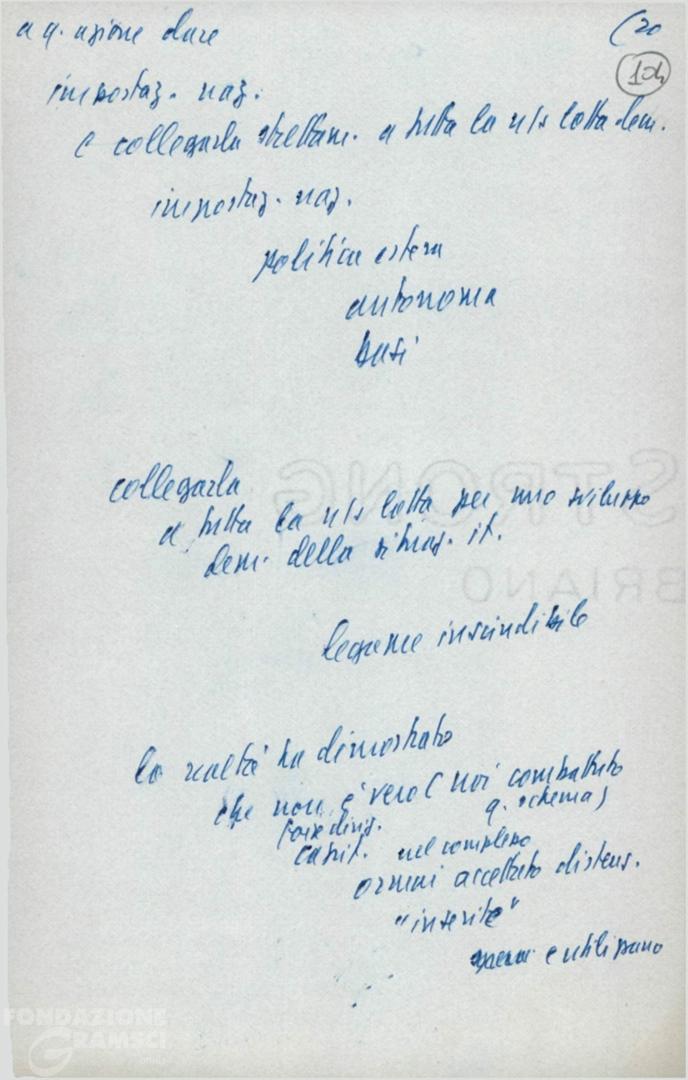 a q. azione dare
(20
104
impostaz. naz.
e collegarla strettam. a tutta la n/s lotta dem.
impostaz. naz.
politica estera
autonoma
basi
collegarla
a tutta la n/s lotta per uno sviluppo
dem. della situaz. it.
legame inscindibile
la realtà ha dimostrato
che non è vero (noi combattuto
q. schema)
capit. nel complesso
ormai accettato distens.
"inserite"
e utilizzano
STRONG
BRIANO
FONDAZIONE
GRAMSCI